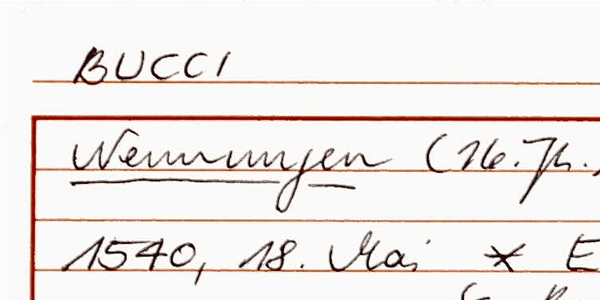 BUCCI
Nennungen (16. Jh.
1540, 18. Mai * E